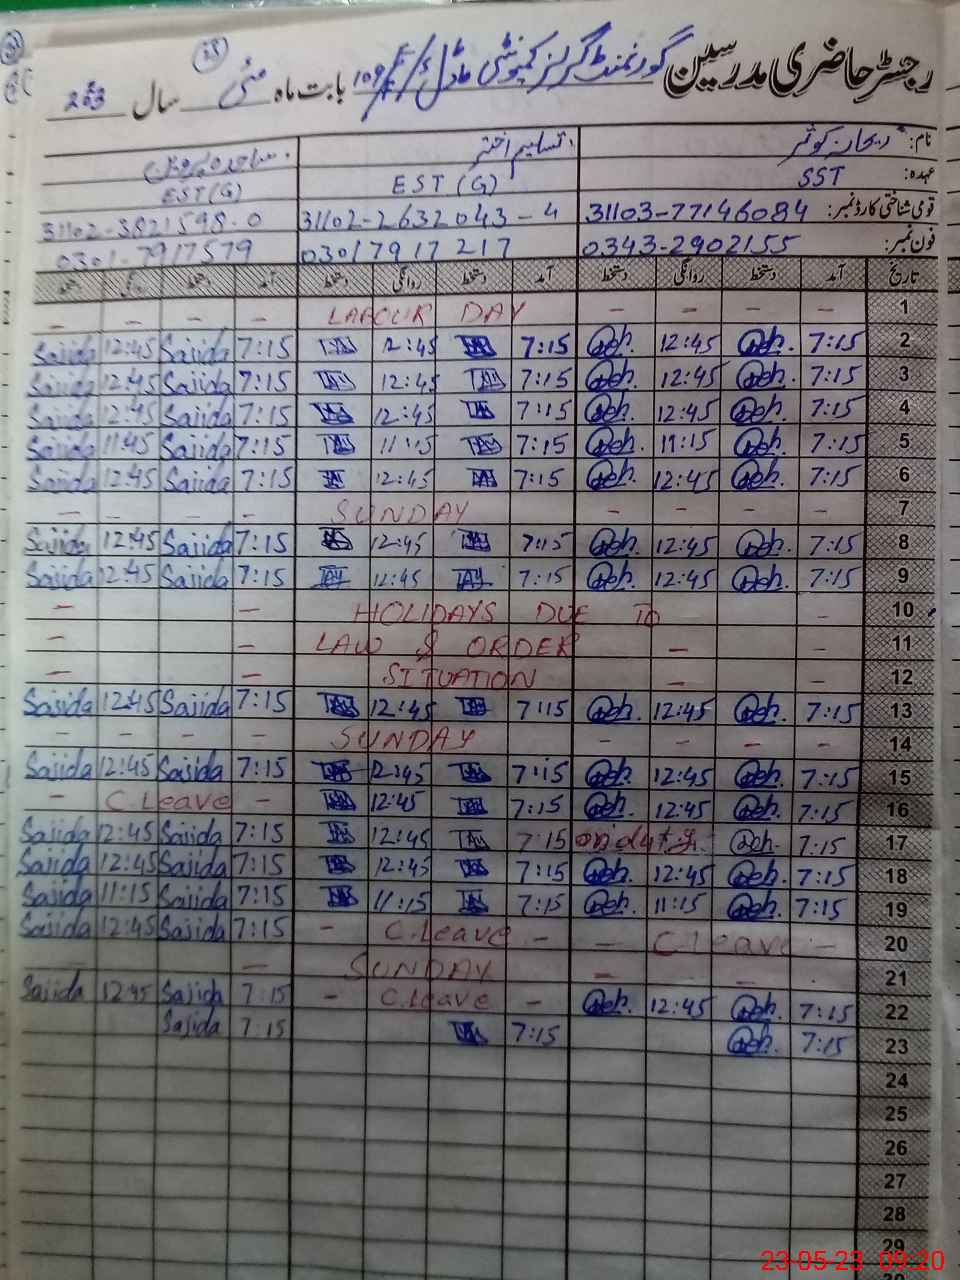 رجسٹر حاضری مدرسین گورنمنٹ گرلز کمیونٹی ماڈل بابت ماہ مئی سال
نام: ریحانہ کوثر تسلیم اختر
عہدہ: SST EST (G) EST (G)
قومی شناختی کارڈ نمبر: 31103-77146084 31102-2632043-4 31102-3821598-0
فون نمبر: 0343-2902155 03017917217 0301-7917579
تاریخ آمد دستخط روانگی دستخط آمد دستخط روانگی دستخط آمد دستخط روانگی دستخط
1 - - - - LABOUR DAY - - - -
2 7:15 12:45 7:15 12:45 7:15 Sajida 12:45 Sajida
3 7:15 12:45 7:15 12:45 7:15 Sajida 12:45 Sajida
4 7:15 12:45 7:15 12:45 7:15 Sajida 12:45 Sajida
5 7:15 11:15 7:15 11:15 7:15 Sajida 11:45 Sajida
6 7:15 12:45 7:15 12:45 7:15 Sajida 12:45 Sajida
7 - - - - SUNDAY - - - -
8 7:15 12:45 7:15 12:45 7:15 Sajida 12:45 Sajida
9 7:15 12:45 7:15 12:45 7:15 Sajida 12:45 Sajida
10 - HOLIDAYS DUE TO - -
11 - - LAW & ORDER - -
12 - - SITUATION - -
13 7:15 12:45 7:15 12:45 7:15 Sajida 12:45 Sajida
14 - - - - SUNDAY - - - -
15 7:15 12:45 7:15 12:45 7:15 Sajida 12:45 Sajida
16 7:15 12:45 7:15 12:45 - C.Leave -
17 7:15 on duty 7:15 12:45 7:15 Sajida 12:45 Sajida
18 7:15 12:45 7:15 12:45 7:15 Sajida 12:45 Sajida
19 7:15 11:15 7:15 11:15 7:15 Sajida 11:15 Sajida
20 - C.leave - - C.leave - 7:15 Sajida 12:45 Sajida
21 - - - SUNDAY - -
22 7:15 12:45 - C.leave - 7:15 Sajida 12:45 Sajida
23 7:15 7:15 7:15 Sajida
24
25
26
27
28
29
23-05-23 09:20